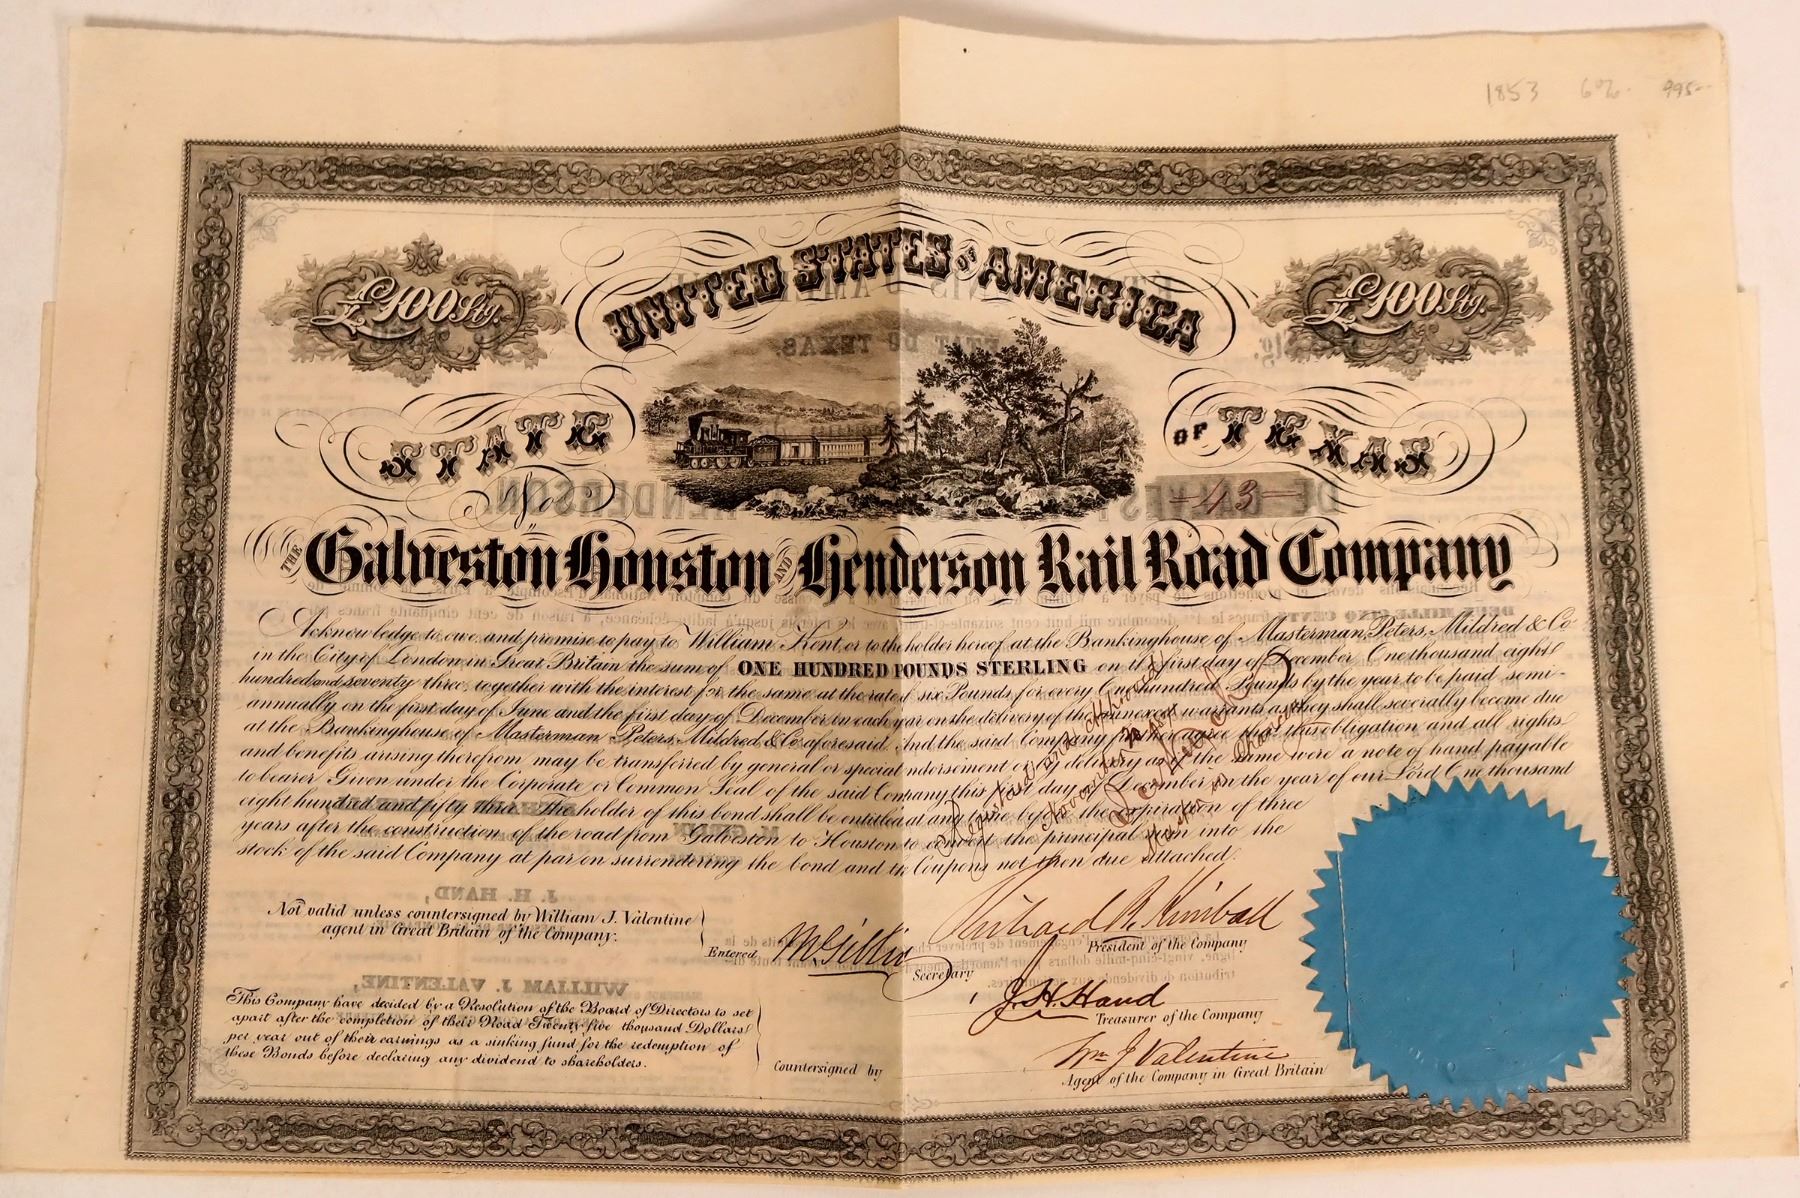 1853 6% 995-
£100 Stg.
UNITED STATES OF AMERICA
£100 Stg.
STATE OF TEXAS
No 43
THE Galveston Houston AND Henderson Rail Road Company
Acknowledge to owe and promise to pay to William Kent or to the holder hereof at the Bankinghouse of Masterman, Peters, Mildred & Co
in the City of London in Great Britain the sum of ONE HUNDRED POUNDS STERLING on the first day of December One thousand eight
hundred and seventy three, together with the interest for the same at the rate of six Pounds for every One hundred Pounds by the year to be paid semi-
annually on the first day of June and the first day of December in each year on the delivery of the annexed warrants as they shall severally become due
at the Bankinghouse of Masterman Peters, Mildred & Co aforesaid. And the said Company further agree that this obligation and all rights
and benefits arising therefrom may be transferred by general or special endorsement or by delivery as if the same were a note of hand payable
to bearer Given under the Corporate or Common Seal of the said Company this first day of December in the year of our Lord One thousand
eight hundred and fifty three. The holder of this bond shall be entitled at any time before the expiration of three
years after the construction of the road from Galveston to Houston to convert the principal sum into the
stock of the said Company at par on surrendering the bond and the Coupons not then due attached.
Registered and approved
November
Master in Chancery
Not valid unless countersigned by William J. Valentine
agent in Great Britain of the Company.
Entered, Secretary
Richard R. Kimball
President of the Company
J. H. Hand
Treasurer of the Company
This Company have decided by a Resolution of the Board of Directors to set
apart after the completion of their Road Twenty five thousand Dollars
per year out of their earnings as a sinking fund for the redemption of
these Bonds before declaring any dividend to shareholders.
Countersigned by
Wm J Valentine
Agent of the Company in Great Britain